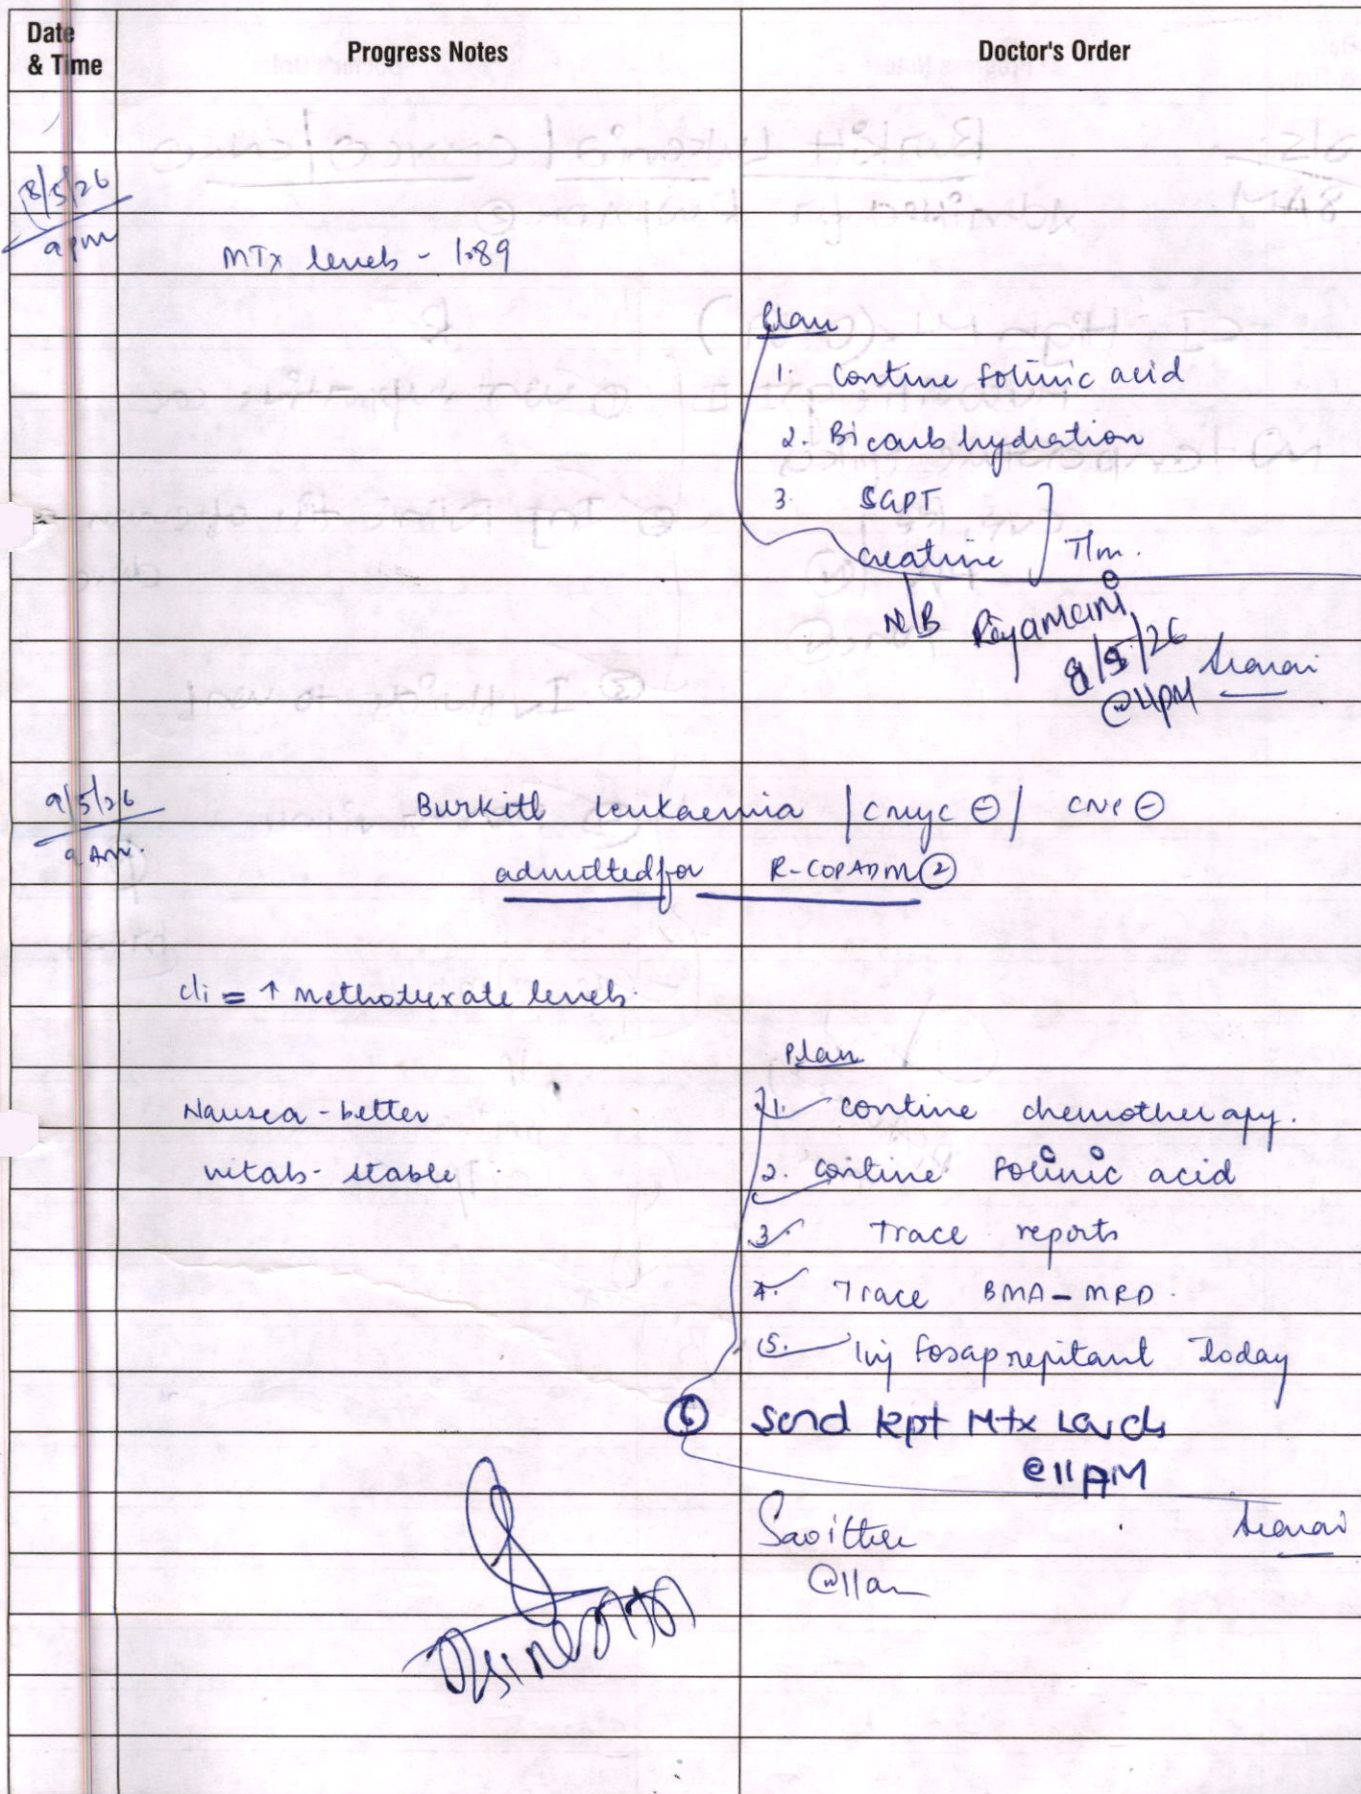 Date & Time
Progress Notes
Doctor's Order
8/5/26
9pm
MTx levels - 1.89
Plan
1. Contine folinic acid
2. Bicarb hydration
3. SGPT
creatine T/m.
N/B
8/5/26
@11PM
9/5/26
9 Am.
Burkitt leukaemia / cmyc ⊖ / CNS ⊖
admitted for R-COPADM ②
c/i = ↑ methotrexate levels.
Plan
Nausea - better
1. contine chemotherapy.
vitals - stable
2. contine folinic acid
3. Trace reports
4. Trace BMA - MRD.
5. Inj fosaprepitant Today
⑥ Send rpt Mtx Levels
@ 11 AM
@11am